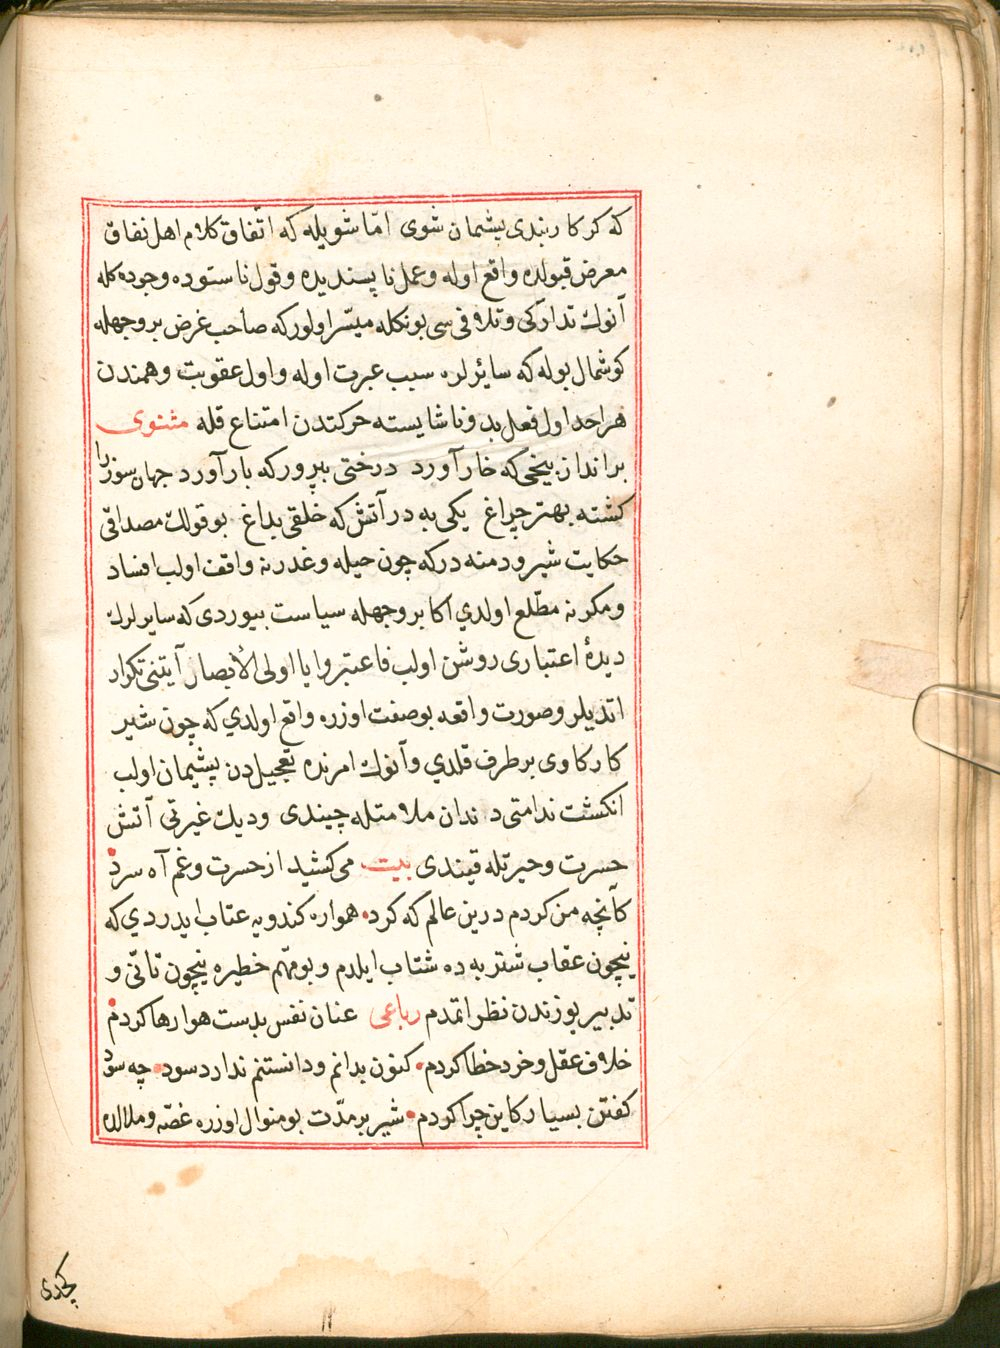 که کر کار نبدی پشیمان شوی امّا شویله که اتّفاق کلام اهل نفاق
معرض قبولده واقع اوله وعمل ناپسندیده وقول ناستوده وجوده کله
آنوك تدارکی وتلافی سی بونكله میسّر اولور که صاحب غرض بر وجهله
کوشمال بوله که سائرلره سبب عبرت اوله واول عقوبت وهمندن
هر احد اول فعل بد وناشایسته حرکتدن امتناع قله مثنوی
بر انداز بیخی که خار آورد درختی بپرور که بار آورد جهان سوز را
کشته بهتر چراغ یکی به در آتش که خلقی بداغ بو قولك مصداقی
حکایت شیر ودمنه در که چون حیله وغدرنه واقف اولب افساد
ومکرنه مطّلع اولدي اکا بر وجهله سیاست بیوردی که سایرلرك
دیدهٔ اعتباری روشن اولب فاعتبروا یا اولی الأبصار آیتنی تکرار
اتدیلر وصورت واقعه بو صفت اوزره واقع اولدي که چون شیر
کار کاوی بر طرف قلدي وآنوك امرنده تعجیل دن پشیمان اولب
انکشت ندامتی دندان ملامتله چیندی ودیك غیرتی آتش
حسرت وحیرتله قیندی بیت می کشید از حسرت وغم آه سرد
کآنچه من کردم درین عالم که کرد همواره کندویه عتاب ایدردي که
نیچون عقاب شتربه ده شتاب ایلدم وبو مهّم خطیره نیچون تأنّی و
تدبیر یوزندن نظر اتمدم رباعی عنان نفس بدست هوا رها کردم
خلاف عقل وخرد خطا کردم کنون بدانم ودانستنم ندارد سود چه سود
کفتن بسیار کاین چرا کردم شیر بر مدّت بو منوال اوزره غصّه وملالده